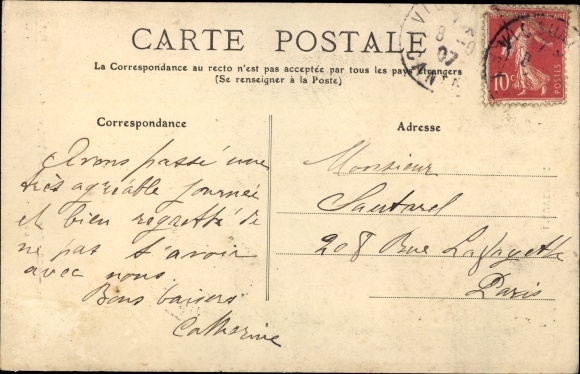 CARTE POSTALE
La Correspondance au recto n'est pas acceptée par tous les pays étrangers
(Se renseigner à la Poste)
Correspondance
Adresse
Avons passé une
très agréable journée
et bien regretté de
ne pas t'avoir
avec nous.
Bons baisers
Catherine
Monsieur
Sautarel
208 Rue Lafayette
Paris
REPUBLIQUE FRANÇAISE
10c
POSTES
VIC
8
07
CANTAL